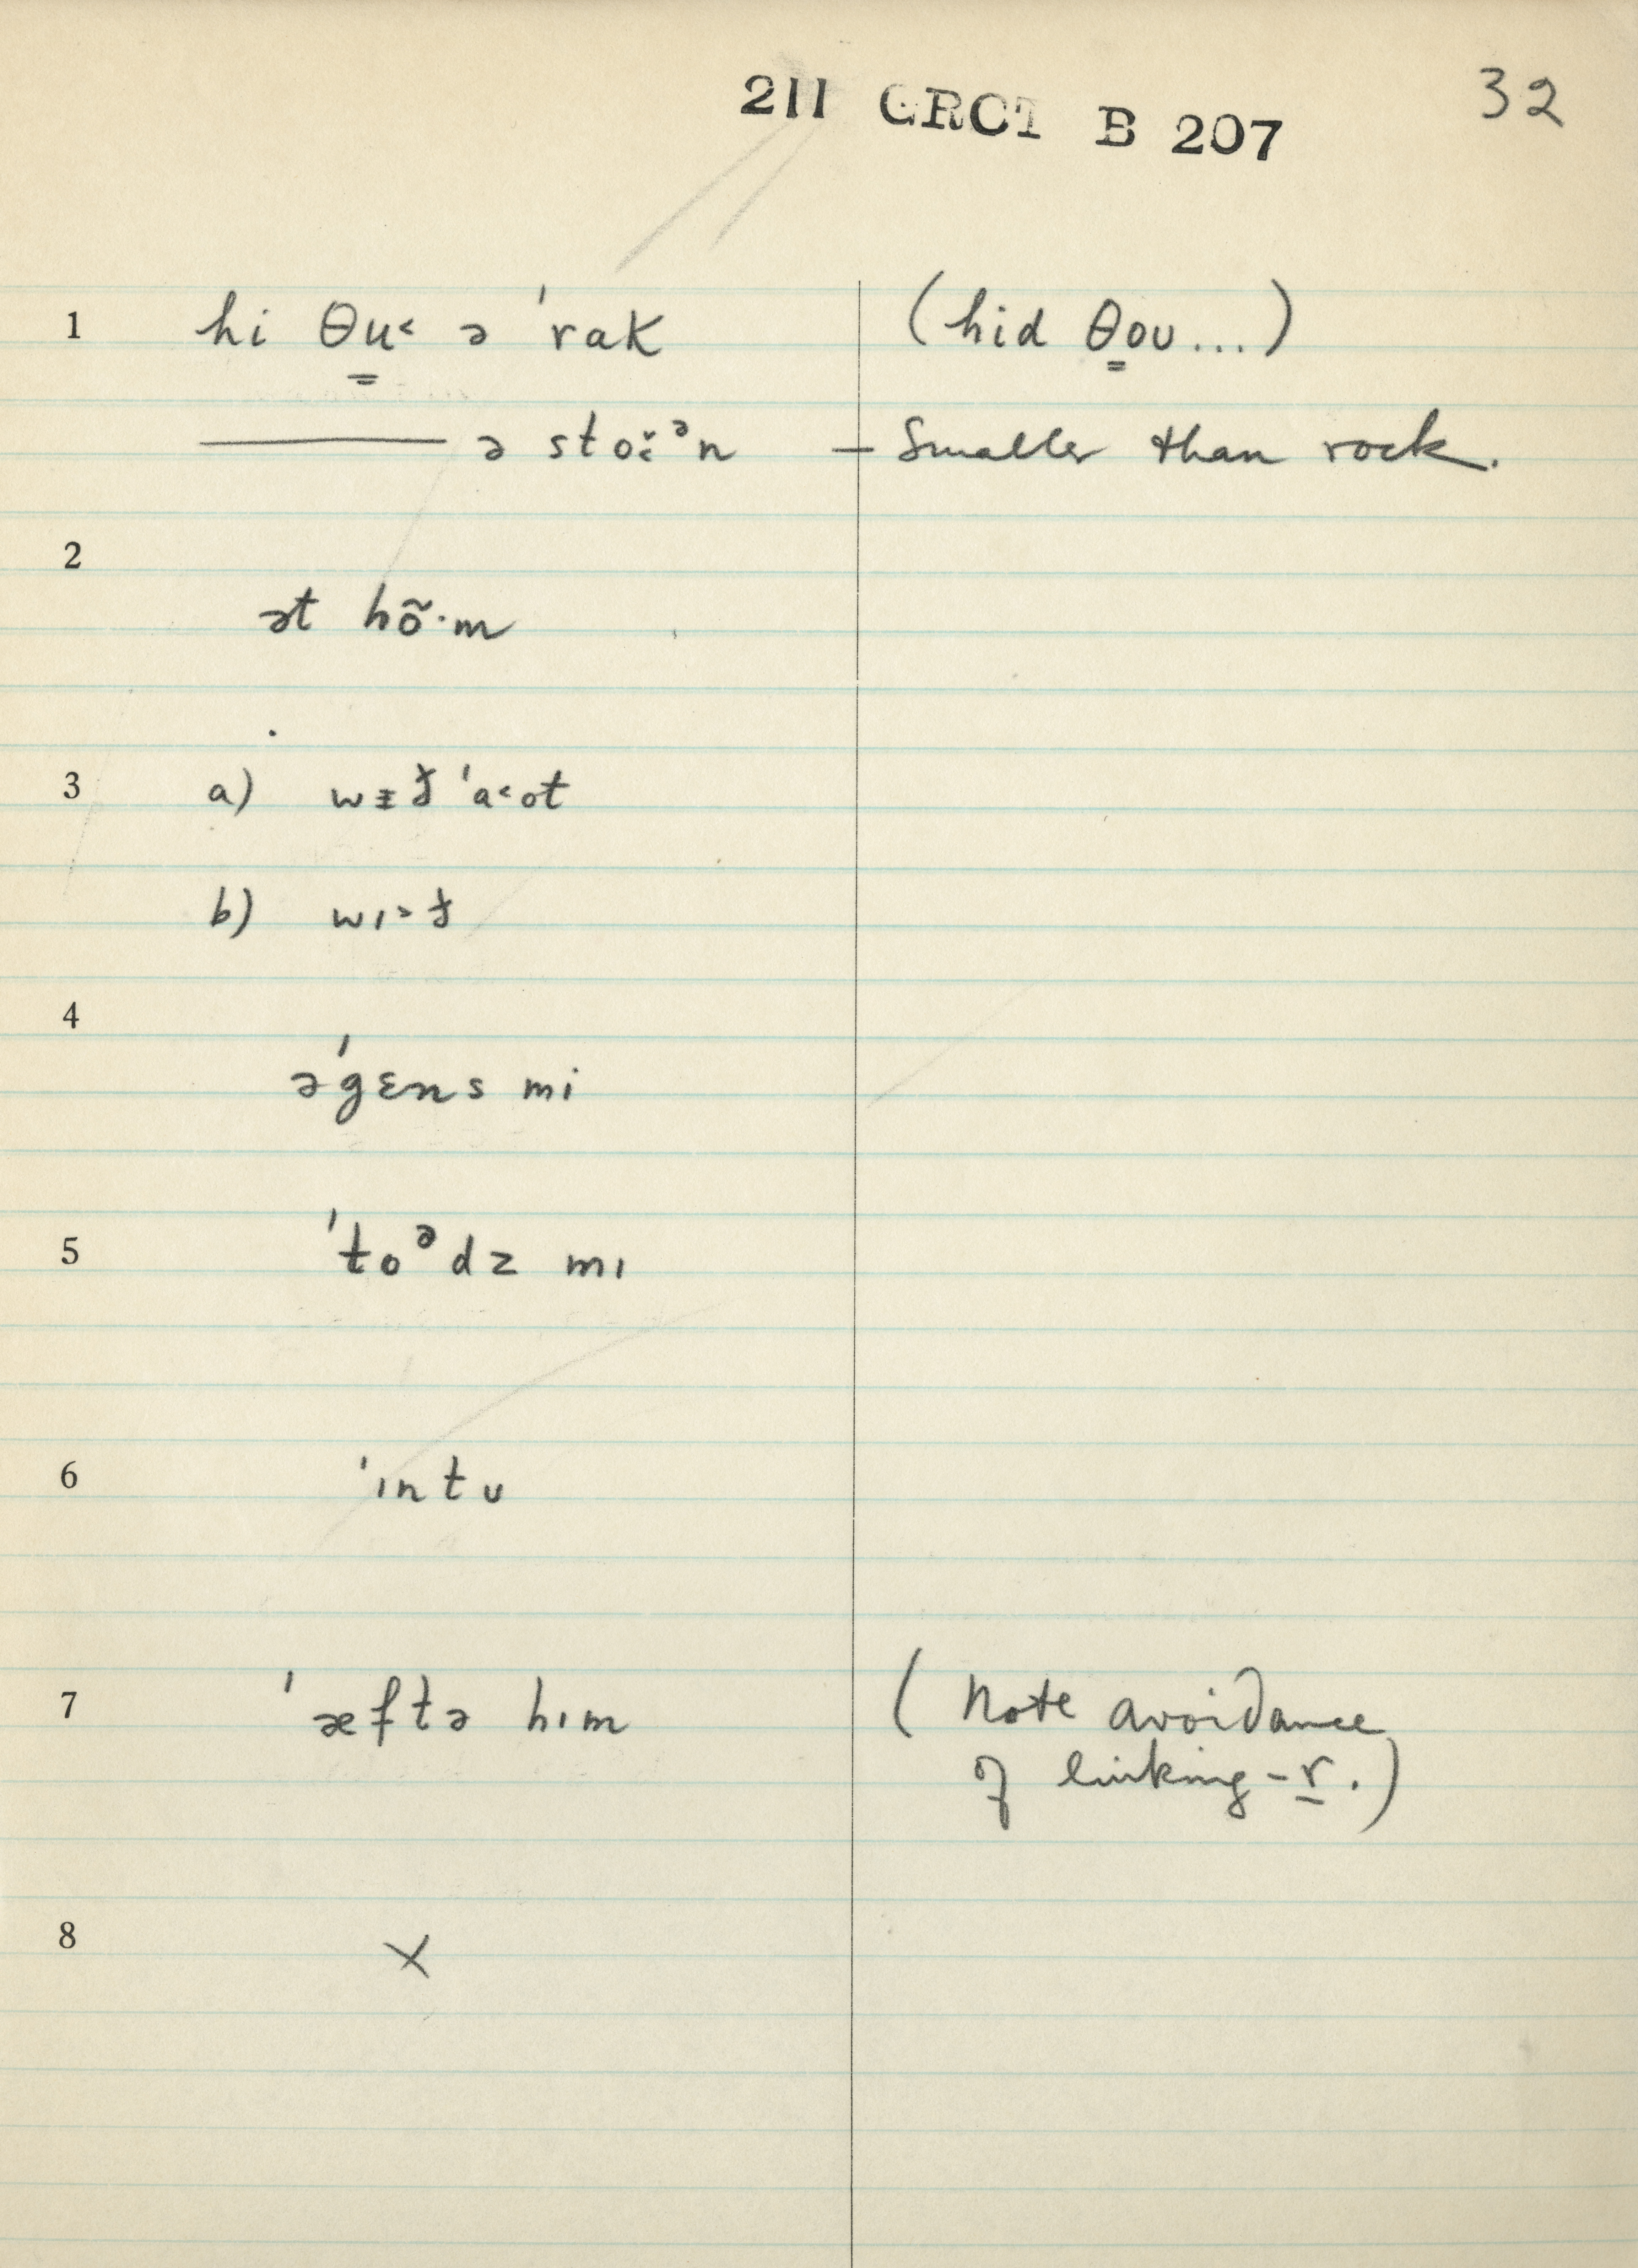 211 GRCT B 207 32
1 hi θu˂ ə ˈrak (hid θoʊ...)
——— ə sto̯ːᵊn — Smaller than rock.
2
ət hõ·m
3 a) wɪð ˈa˂ot
b) wɪ˃ð
4
əˈgɛns mi
5 ˈtoᵊdz mɪ
6 ˈɪntʊ
7 ˈæftə hɪm (Note avoidance
of linking-r.)
8 X